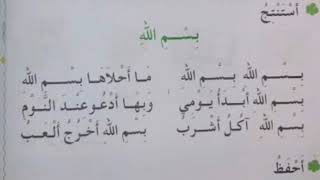 أَسْتَنْتِجُ
بِسْـمِ اللهِ
بِـسْـمِ اللهِ بِـسْـمِ الله مَا أَحْلَاهَا بِسْـمِ الله
بِسْـمِ الله أَبْدَأُ يَوْمِي وَبِهَا أَدْعُو عِنْدَ النَّوْمَ
بِسْمِ اللهِ آكُلُ أَشْرَبُ بِسْمِ اللهِ أَخْرُجُ أَلْعَبُ
أَحْفَظُ